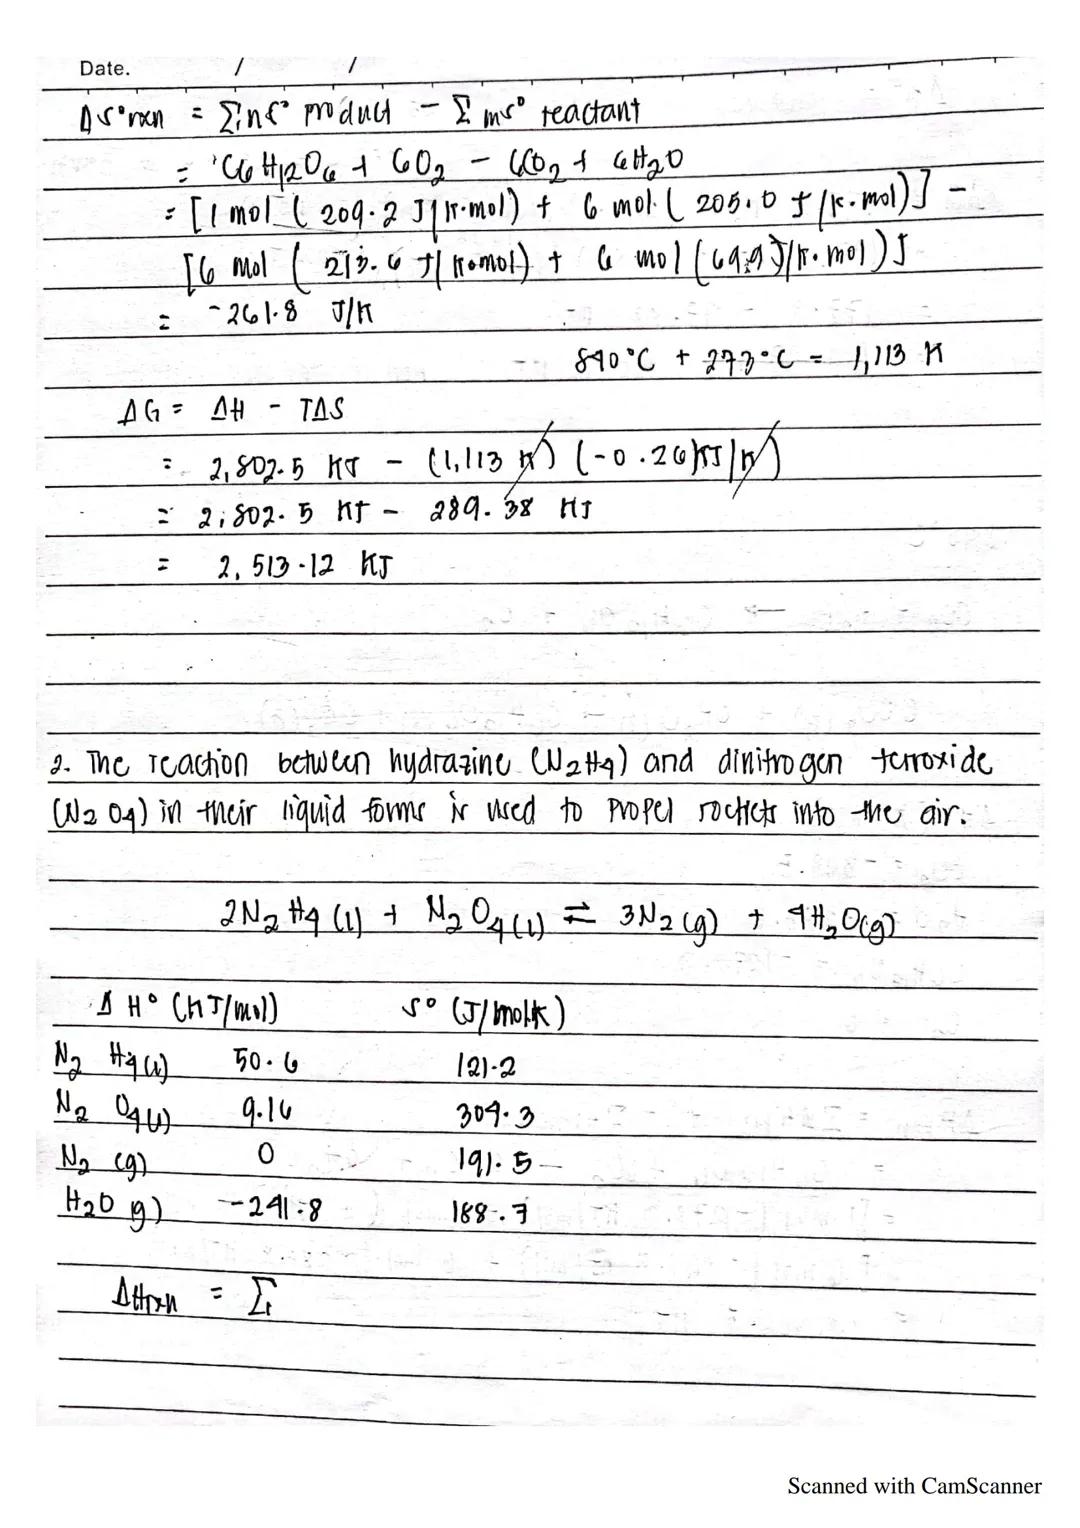 Date. / /
ΔS°rxn = Σ nS° product - Σ mS° reactant
= C6H12O6 + 6O2 - 6CO2 + 6H2O
= [1 mol (209.2 J/K·mol) + 6 mol (205.0 J/K·mol)] -
[6 mol (213.6 J/K·mol) + 6 mol (69.9 J/K·mol)]
= -261.8 J/K
840°C + 273°C = 1,113 K
ΔG = ΔH - TΔS
= 2,802.5 KJ - (1,113 K) (-0.26 KJ/K)
= 2,802.5 KJ - 289.38 KJ
= 2,513.12 KJ
2. The reaction between hydrazine (N2H4) and dinitrogen terroxide
(N2O4) in their liquid forms is used to propel rockets into the air.
2N2H4(l) + N2O4(l) ⇌ 3N2(g) + 4H2O(g)
ΔH° (KJ/mol) S° (J/molK)
N2H4(l) 50.6 121.2
N2O4(l) 9.16 304.3
N2 (g) 0 191.5
H2O g) -241.8 188.7
ΔHrxn = Σ
Scanned with CamScanner